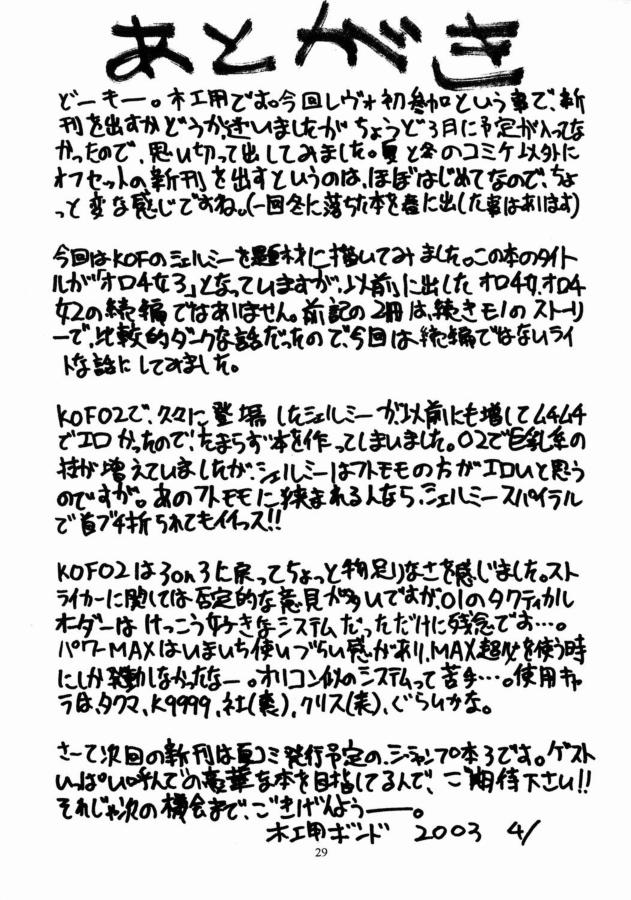 あとがき
どーもー。木工用です。今回レヴォ初参加という事で、新
刊を出すかどうか迷いましたがちょうど3月に予定が入ってな
かったので、思い切って出してみました。夏と冬のコミケ以外に
オフセットの新刊を出すというのは、ほぼはじめてなので、ちょ
っと変な感じですね。(一回冬に落ちた本を春に出した事はあります)
今回はKOFのシェルミーを題材に描いてみました。この本のタイト
ルが「オロチ女3」となっていますが、以前に出したオロチ女、オロチ
女2の続編ではありません。前記の2冊は、続きモノのストーリ
ーで、比較的ダークな話だったので、今回は続編ではないライ
トな話にしてみました。
KOF02で、久々に登場したシェルミーが、以前にも増してムチムチ
でエロかったので、たまらず本を作ってしまいました。02で巨乳系の
技が増えていましたが、シェルミーはフトモモの方がエロいと思う
のですが。あのフトモモに挟まれる人なら、シェルミースパイラル
で首ブチ折られてもイイっス!!
KOF02は3on3に戻ってちょっと物足りなさを感じました。スト
ライカーに関しては否定的な意見が多いですが、01のタクティカル
オーダーはけっこう好きなシステムだっただけに残念です…。
パワーMAXはいまいち使いづらい感があり、MAX超必を使う時
にしか発動しなかったなー。オリコン似のシステムって苦手…。使用キャ
ラは、タクマ、K9999、社(裏)、クリス(表)、ぐらいかな。
さーて次回の新刊は夏コミ発行予定の、ジャンプ本3です。ゲスト
いっぱい呼んでの豪華な本を目指してるんで、ご期待下さい!!
それじゃ次の機会まで、ごきげんようー。
木工用ボンド 2003 4/
29